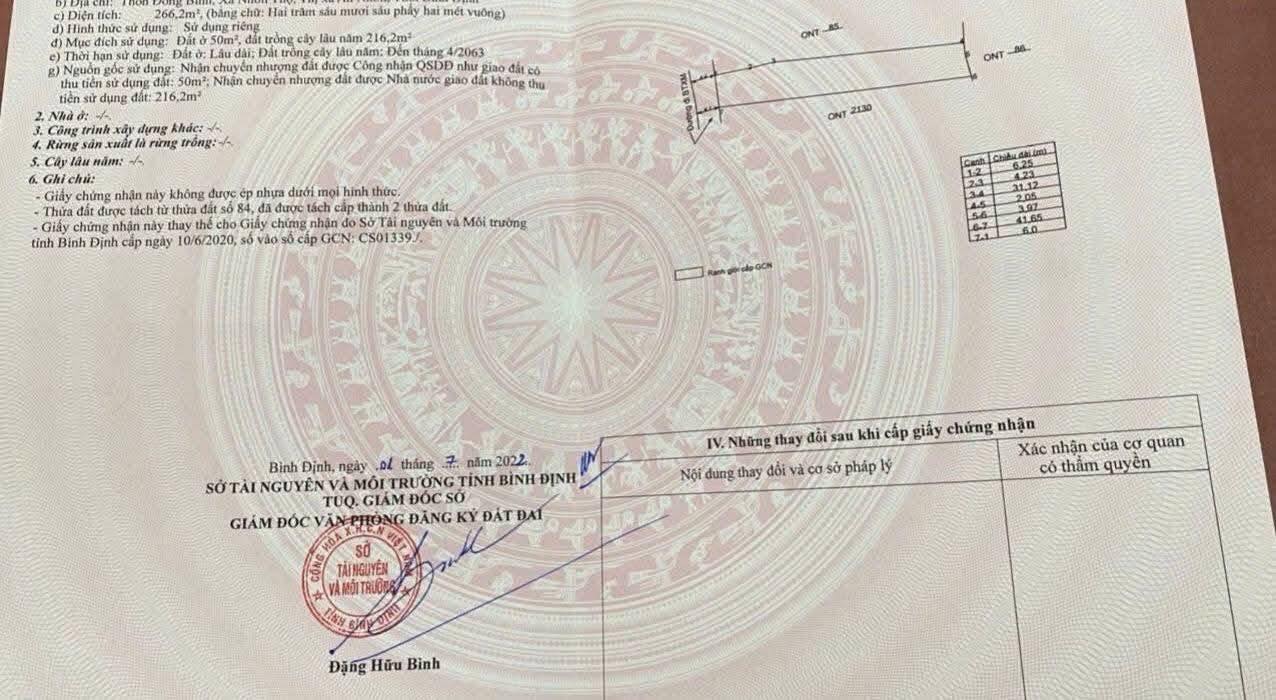 b) Địa chỉ: Thôn Đông Bình, Xã Nhơn Thọ, Thị xã
c) Diện tích: 266,2m², (bằng chữ: Hai trăm sáu mươi sáu phẩy hai mét vuông)
d) Hình thức sử dụng: Sử dụng riêng
đ) Mục đích sử dụng: Đất ở 50m², đất trồng cây lâu năm 216,2m²
e) Thời hạn sử dụng: Đất ở: Lâu dài; Đất trồng cây lâu năm: Đến tháng 4/2063
g) Nguồn gốc sử dụng: Nhận chuyển nhượng đất được Công nhận QSDĐ như giao đất có
thu tiền sử dụng đất: 50m²; Nhận chuyển nhượng đất được Nhà nước giao đất không thu
tiền sử dụng đất: 216,2m²
2. Nhà ở: -/-.
3. Công trình xây dựng khác: -/-.
4. Rừng sản xuất là rừng trồng: -/-.
5. Cây lâu năm: -/-.
6. Ghi chú:
- Giấy chứng nhận này không được ép nhựa dưới mọi hình thức.
- Thửa đất được tách từ thửa đất số 84, đã được tách cấp thành 2 thửa đất.
- Giấy chứng nhận này thay thế cho Giấy chứng nhận do Sở Tài nguyên và Môi trường
tỉnh Bình Định cấp ngày 10/6/2020, số vào sổ cấp GCN: CS01339./.
ONT 85
ONT 86
Đường đi BTXM
ONT 2130
Cạnh Chiều dài (m)
1-2 6.25
2-3 4.23
3-4 31.12
4-5 2.05
5-6 3.97
6-7 41.65
7-1 6.0
Ranh giới cấp GCN
Bình Định, ngày 01 tháng 7 năm 2022.
SỞ TÀI NGUYÊN VÀ MÔI TRƯỜNG TỈNH BÌNH ĐỊNH
TUQ. GIÁM ĐỐC SỞ
GIÁM ĐỐC VĂN PHÒNG ĐĂNG KÝ ĐẤT ĐAI
CỘNG HÒA X.H.C.N VIỆT NAM
SỞ
TÀI NGUYÊN
VÀ MÔI TRƯỜNG
TỈNH BÌNH ĐỊNH
Đặng Hữu Bình
IV. Những thay đổi sau khi cấp giấy chứng nhận
Nội dung thay đổi và cơ sở pháp lý
Xác nhận của cơ quan
có thẩm quyền